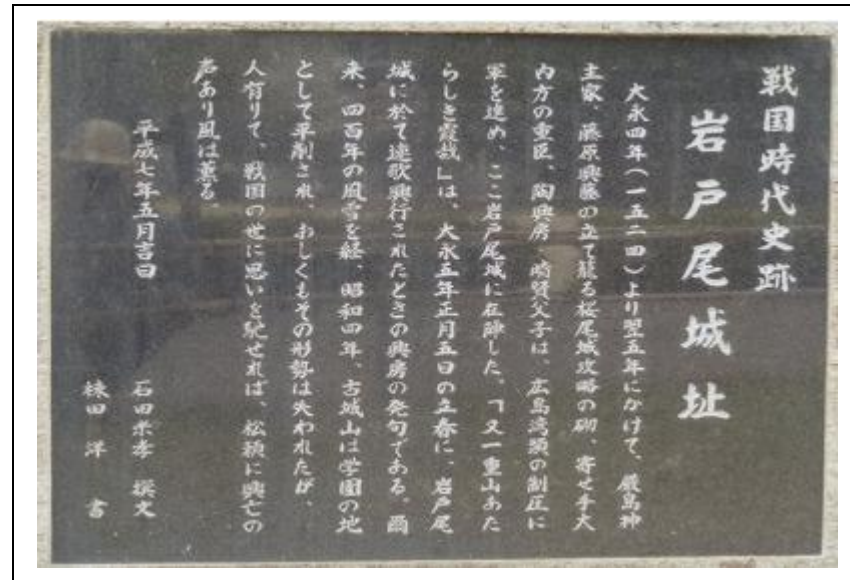 戦国時代史跡
岩戸尾城址
大永四年(一五二四)より翌五年にかけて、厳島神
主家、藤原興藤の立て籠る桜尾城攻略の砌、寄せ手大
内方の重臣、陶興房、晴賢父子は、広島湾頭の制圧に
軍を進め、ここ岩戸尾城に在陣した。「又一重山あた
らしき霞哉」は、大永五年正月五日の立春に、岩戸尾
城に於て連歌興行されたときの興房の発句である。爾
来、四百年の風雪を経、昭和四年、古城山は学園の地
として平削され、おしくもその形勢は失われたが、
人有りて、戦国の世に思いを馳せれば、松籟に興亡の
声あり風は薫る。
平成七年五月吉日
石田米孝 撰文
棟田 洋 書